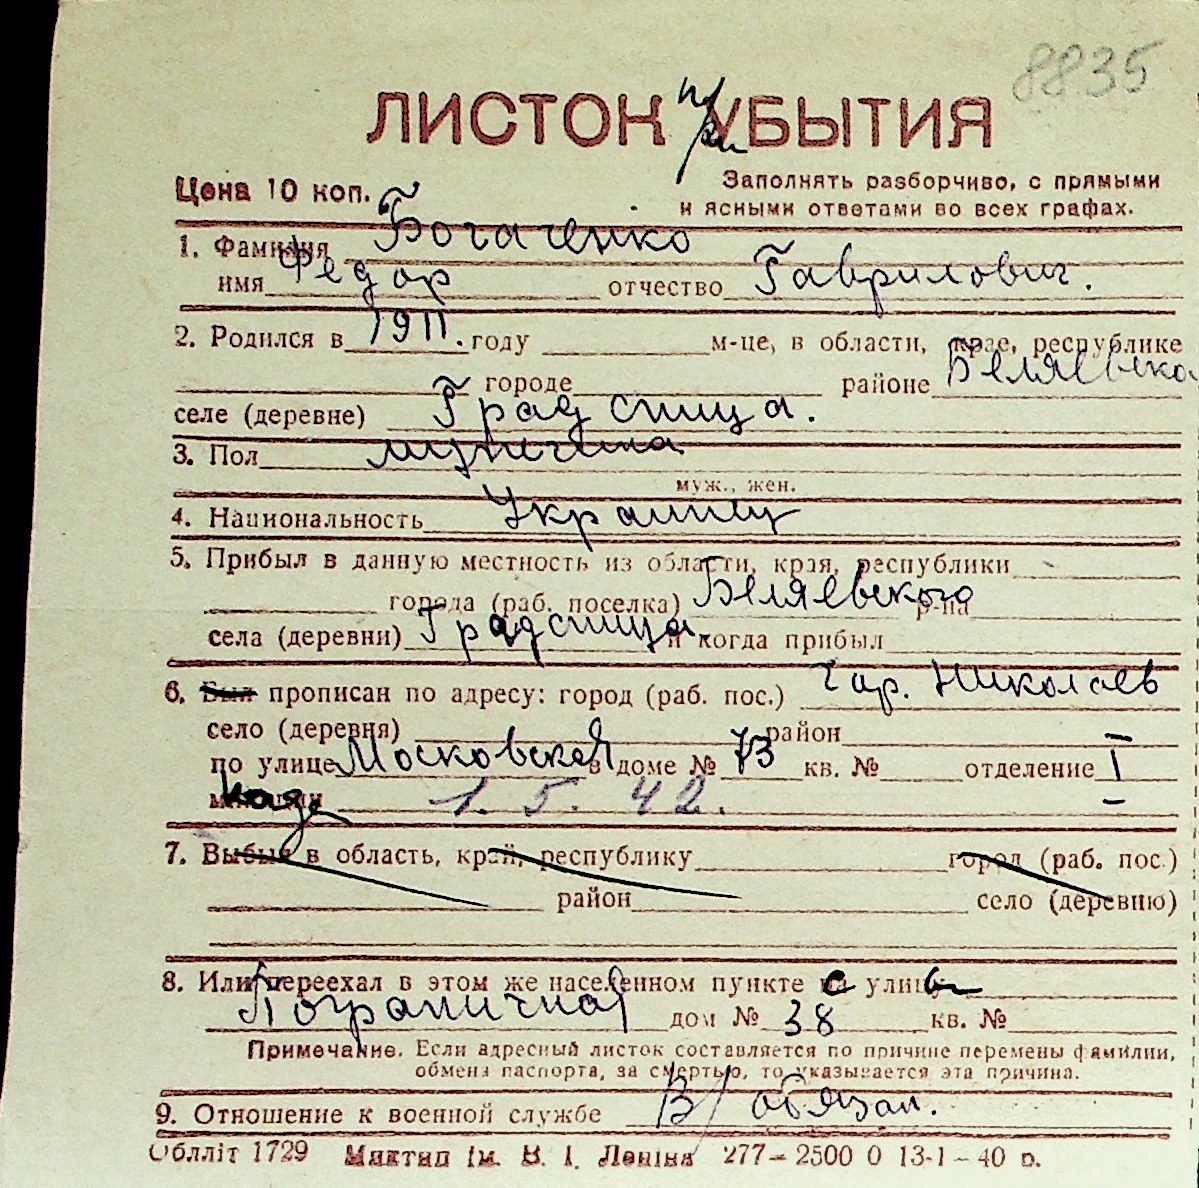 8835
ЛИСТОК при УБЫТИЯ
Цена 10 коп.
Заполнять разборчиво, с прямыми
и ясными ответами во всех графах.
1. Фамилия Богаченко
имя Федор отчество Гаврилович.
2. Родился в 1911. году м-це, в области, крае, республике
городе районе Беляевско
селе (деревне) Градспица.
3. Пол мужчина
муж., жен.
4. Национальность Украинец
5. Прибыл в данную местность из области, края, республики
города (раб. поселка) Беляевского р-на
села (деревни) Градспица. и когда прибыл
6. Был прописан по адресу: город (раб. пос.) гор. Николаев
село (деревня) район
по улице Московская в доме № 73 кв. № отделение I
милиции 1. 5. 42.
7. Выбыл в область, край, республику город (раб. пос.)
район село (деревню)
8. Или переехал в этом же населенном пункте с улицы
Пограничная дом № 38 кв. №
Примечание. Если адресный листок составляется по причине перемены фамилии,
обмена паспорта, за смертью, то указывается эта причина.
9. Отношение к военной службе В/обязан.
Облліт 1729 Миктип ім. В. І. Леніна 277–2500 0 13-1–40 р.